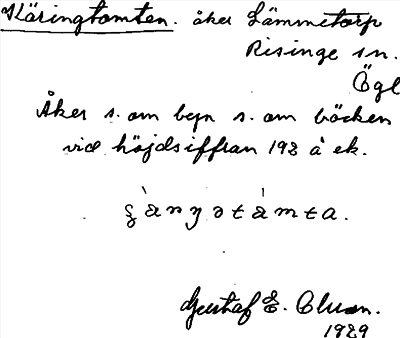 Käringtomten. åker Lämmetorp
Risinge sn.
Ögl
Åker s. om byn s. om bäcken
vid höjdsiffran 192 å ek.
Gustaf E.
1929